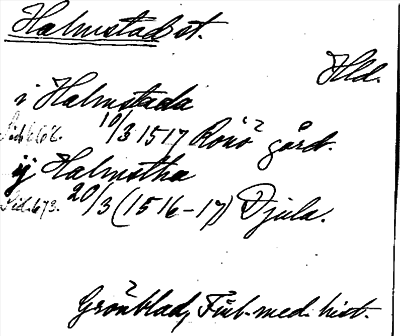 Halmstad st.
Hld.
i Halmstada
Sid. 10/3 1517 Rönö gård.
ij Halmstha
Sid. 673. 20/3 (1516-17) Djula.
Grönblad, med. hist.